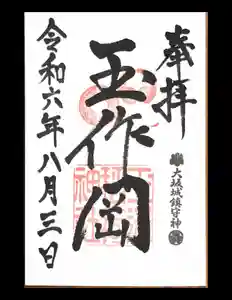 奉拝
大坂城鎮守神
玉作岡
令和六年八月三日